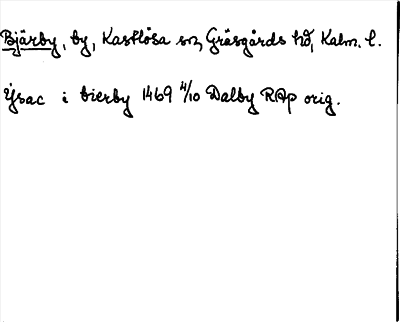 Bjärby, by, Kastlösa sn, Gräsgårds hd, Kalm. l.
Ysac i bierby 1469 4/10 Dalby RAp orig.